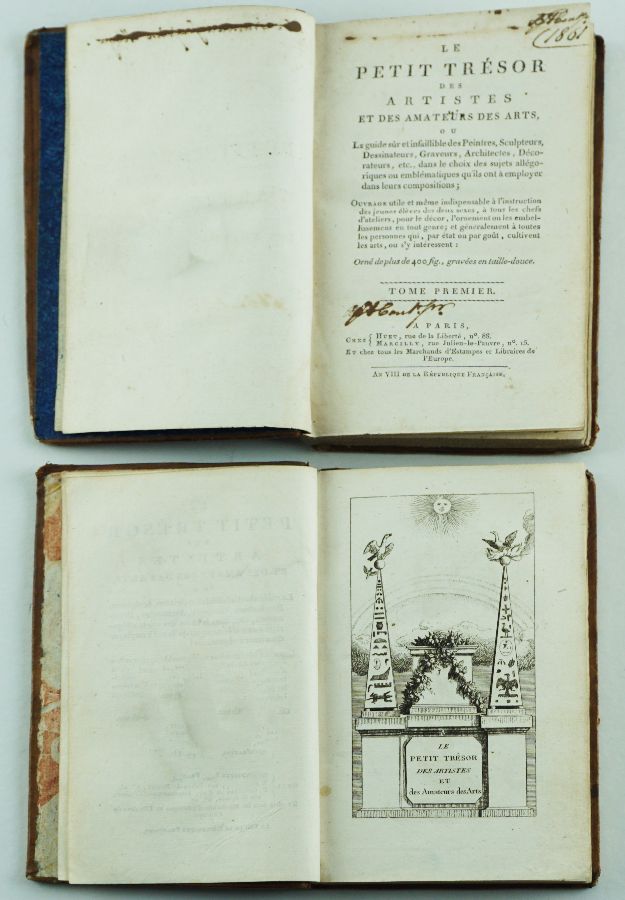 (1861
LE
PETIT TRÉSOR
DES
ARTISTES
ET DES AMATEURS DES ARTS,
OU
Le guide sûr et infaillible des Peintres, Sculpteurs,
Dessinateurs, Graveurs, Architectes, Déco-
rateurs, etc., dans le choix des sujets allégo-
riques ou emblématiques qu'ils ont à employer
dans leurs compositions;
OUVRAGE utile et même indispensable à l'instruction
des jeunes élèves des deux sexes, à tous les chefs
d'ateliers, pour le décor, l'ornement ou les embel-
lissemens en tout genre; et généralement à toutes
les personnes qui, par état ou par goût, cultivent
les arts, ou s'y intéressent:
Orné de plus de 400 fig., gravées en taille-douce.
TOME PREMIER.
A PARIS,
CHEZ { HUET, rue de la Liberté, n°. 88.
MARCILLY, rue Julien-le-Pauvre, n°. 15.
ET chez tous les Marchands d'Estampes et Libraires de
l'Europe.
AN VIII DE LA RÉPUBLIQUE FRANÇAISE.
LE
PETIT TRÉSOR
DES ARTISTES
ET
des Amateurs des Arts